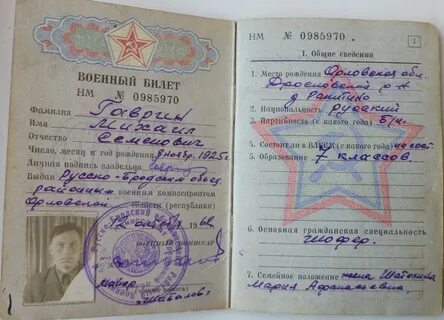 ВОЕННЫЙ БИЛЕТ
НМ № 0985970
Фамилия Гаврин
Имя Михаил
Отчество Семенович
Число, месяц и год рождения 8 ноябр. 1925г
Личная подпись владельца
Выдан Русско-Бродским объед
районным военным комиссариатом
Орловской области (республики)
196
майор
Шибалов
НМ № 0985970
1
I. Общие сведения
1. Место рождения Орловская обл.
р-н
д.
2. Национальность русский
3. Партийность (с какого года) Б/п.
4. Состоит ли в ВЛКСМ (с какого года) не сост.
5. Образование 7 классов.
6. Основная гражданская специальность
шофер.
7. Семейное положение жена Шатохина
Мария Афанасьевна.